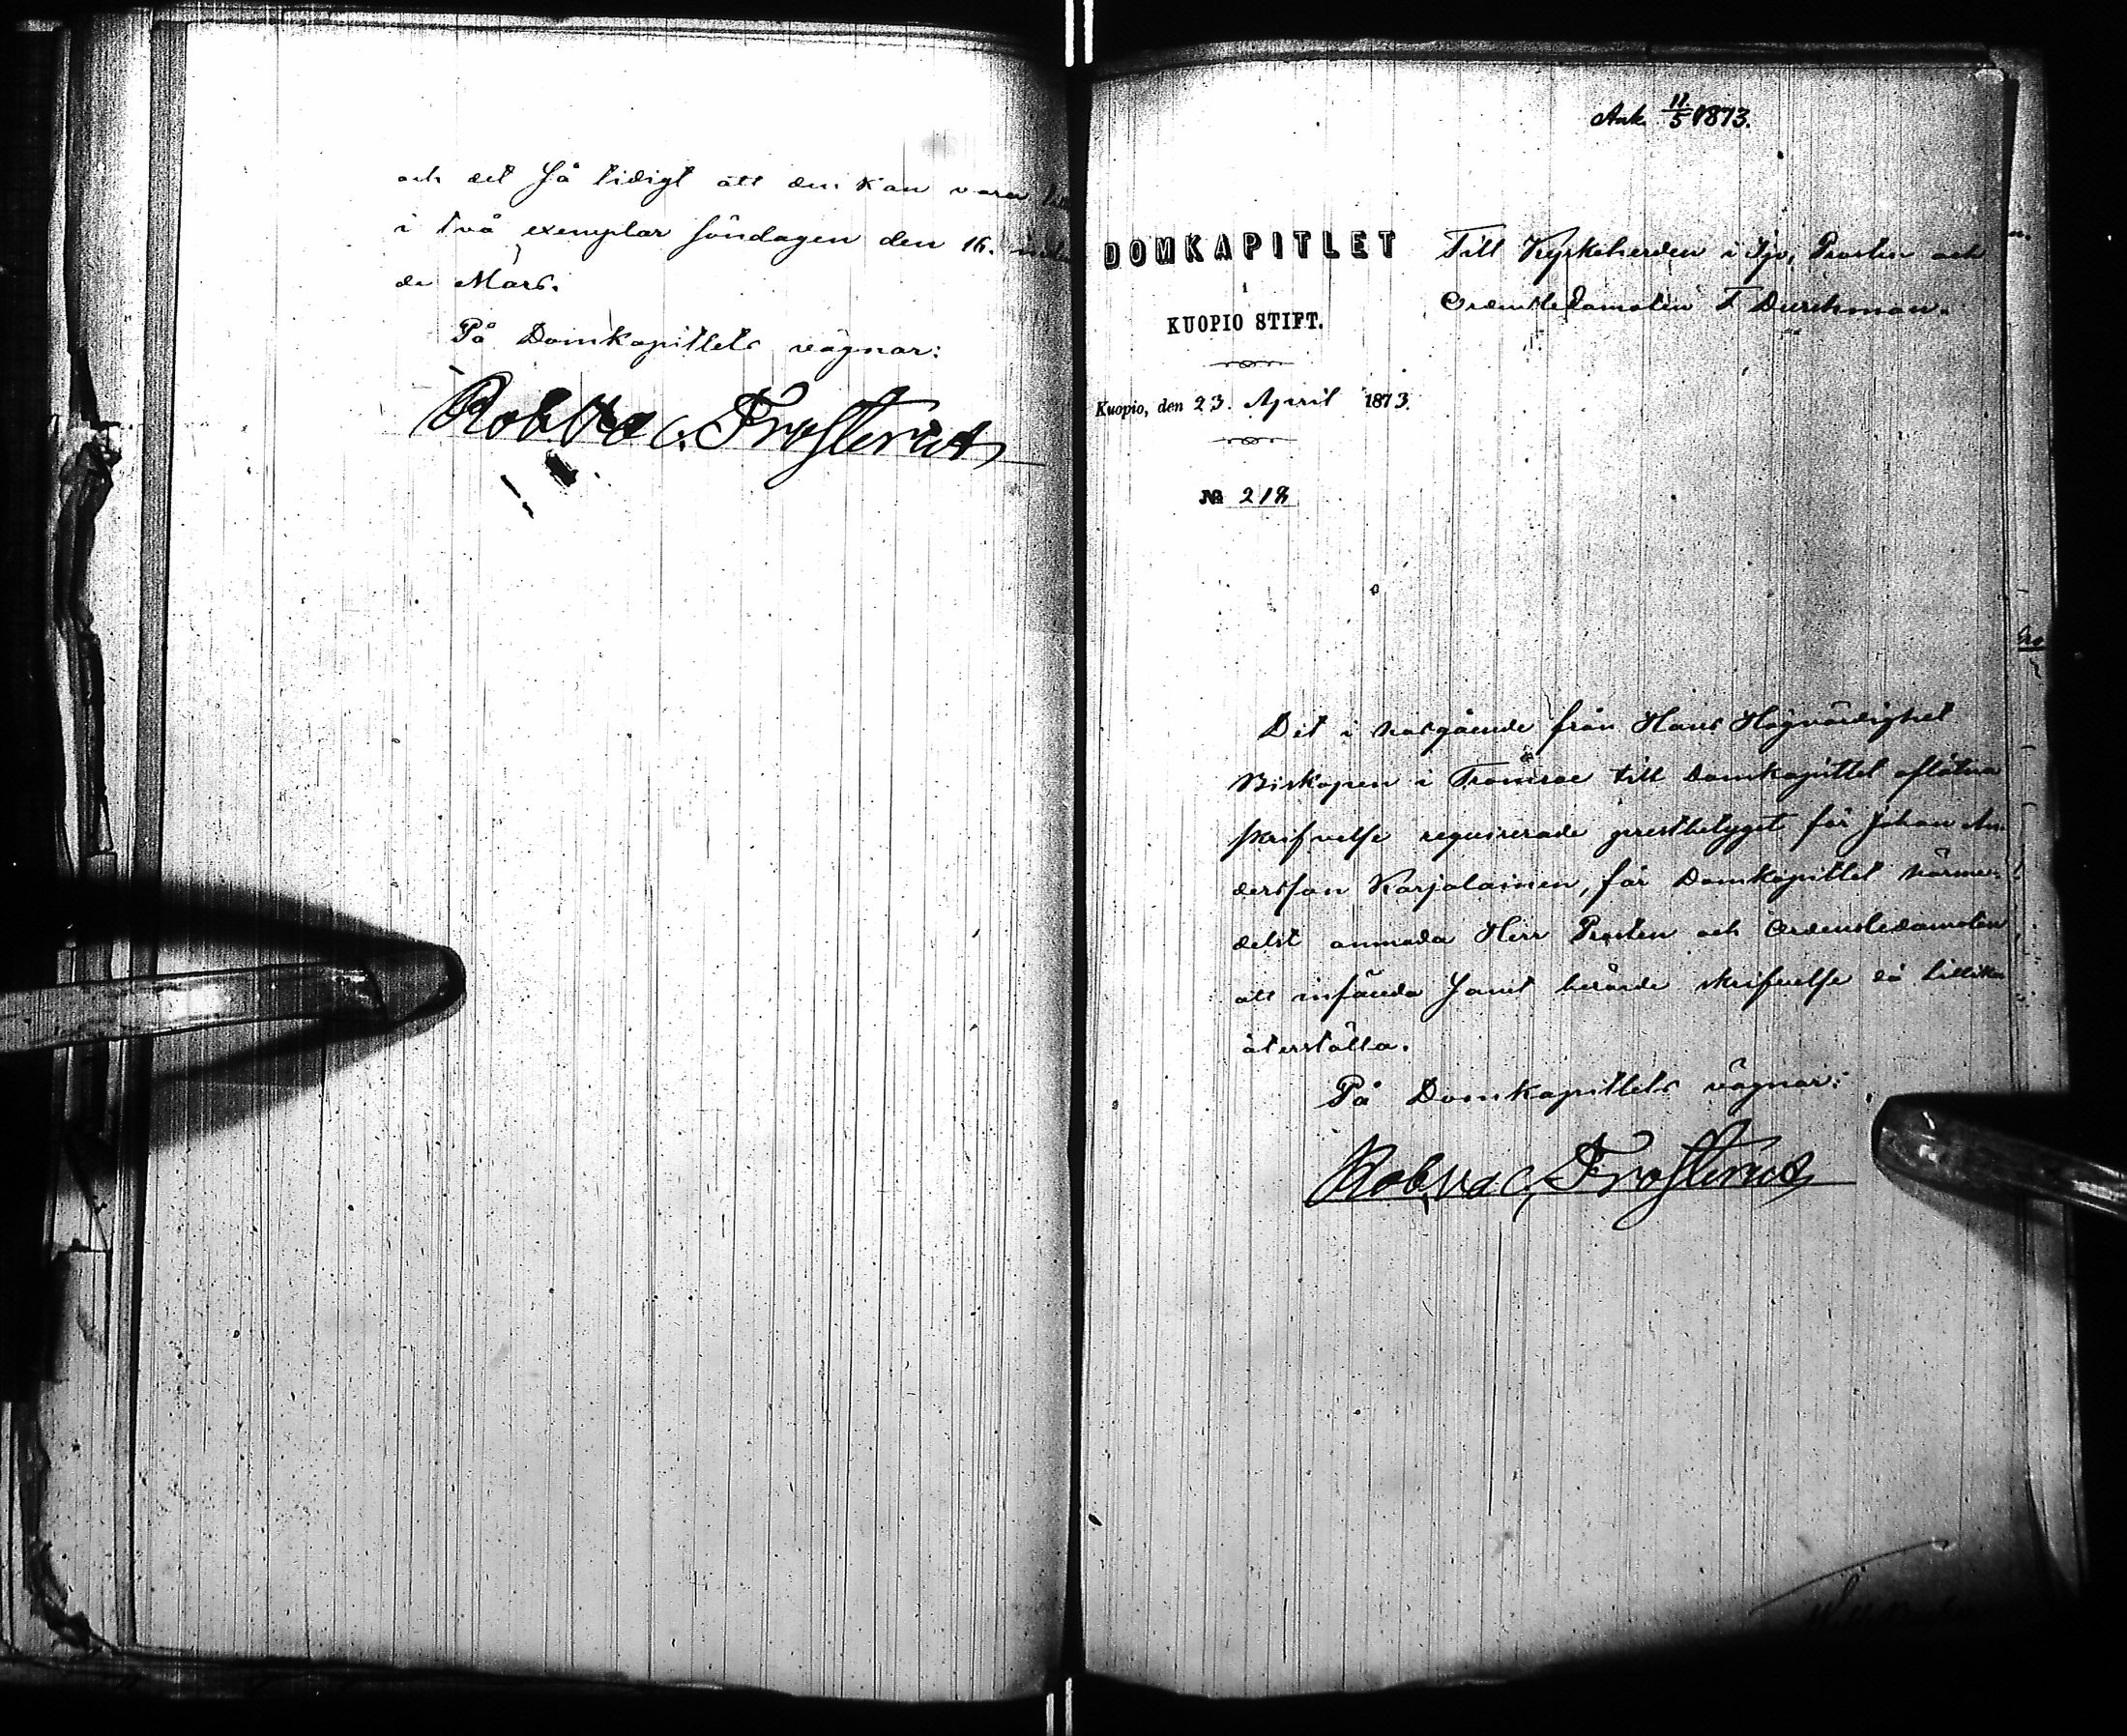 och det så tidigt att den kan vara
i två exemplar söndagen den 16.
de Mars.
På Domkapitlets vägnar:
Rob. Val. Frosterus
Ank 11/5 1873.
DOMKAPITLET
i
KUOPIO STIFT.
Kuopio, den 23. April 1873.
№ 218
Till Kyrkoherden i Ijo, Prosten och
Ordensledamoten F Durchman.
Det i närgående från Hans Högvördighet
Biskopen i Tromsoe till Domkapitlet aflåtna
skrifvelse requirerade prestbetyget för Johan An-
dersson Karjalainen, får Domkapitlet härme-
delst anmoda Herr Prosten och Ordensledamoten
att insända samt berörde skrifvelse då tillika
återställa.
På Domkapitlets vägnar:
Rob. Val. Frosterus